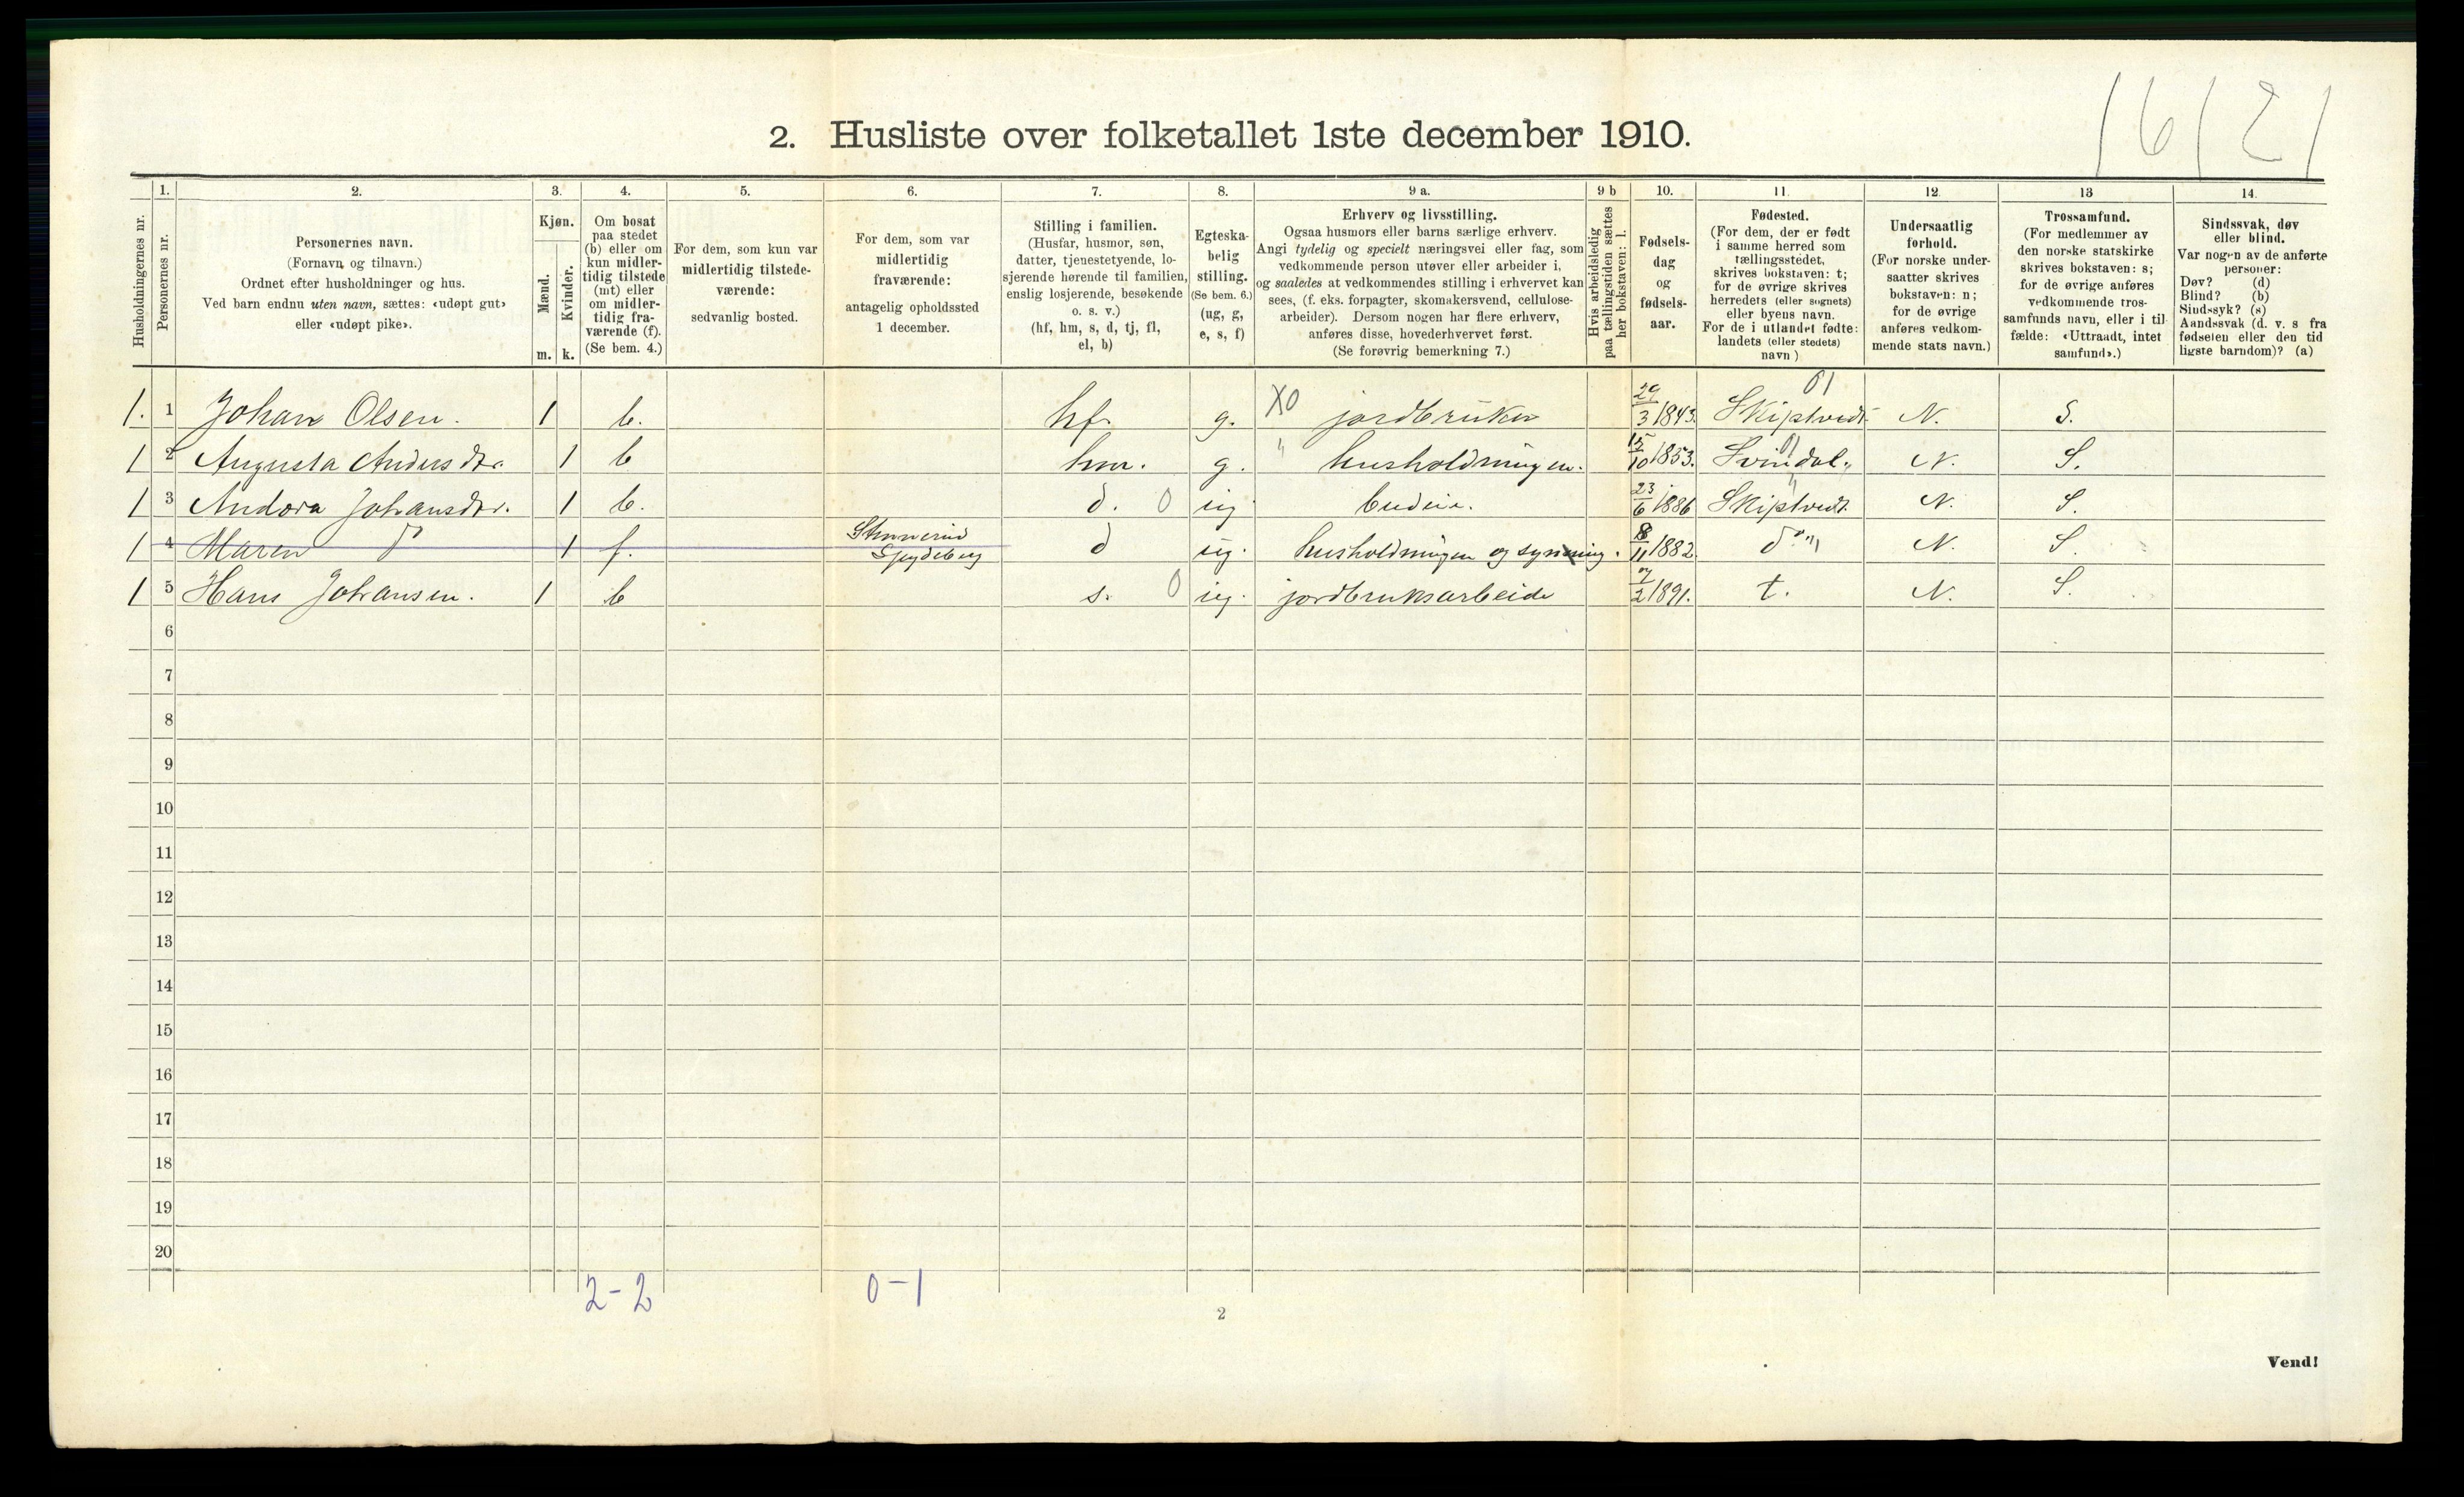 16/21
2. Husliste over folketallet 1ste december 1910.
Husholdningernes nr.
1. Personernes nr.
2. Personernes navn.
(Fornavn og tilnavn.)
Ordnet efter husholdninger og hus.
Ved barn endnu uten navn, sættes: «udøpt gut»
eller «udøpt pike».
3. Kjøn.
Mænd. m.
Kvinder. k.
4. Om bosat
paa stedet
(b) eller om
kun midler-
tidig tilstede
(mt) eller
om midler-
tidig fra-
værende (f).
(Se bem. 4.)
5. For dem, som kun var
midlertidig tilstede-
værende:
sedvanlig bosted.
6. For dem, som var
midlertidig
fraværende:
antagelig opholdssted
1 december.
7. Stilling i familien.
(Husfar, husmor, søn,
datter, tjenestetyende, lo-
sjerende hørende til familien,
enslig losjerende, besøkende
o. s. v.)
(hf, hm, s, d, tj, fl,
el, b)
8. Egteska-
belig
stilling.
(Se bem. 6.)
(ug, g,
e, s, f)
9 a. Erhverv og livsstilling.
Ogsaa husmors eller barns særlige erhverv.
Angi tydelig og specielt næringsvei eller fag, som
vedkommende person utøver eller arbeider i,
og saaledes at vedkommendes stilling i erhvervet kan
sees, (f. eks. forpagter, skomakersvend, cellulose-
arbeider). Dersom nogen har flere erhverv,
anføres disse, hovederhvervet først.
(Se forøvrig bemerkning 7.)
9 b Hvis arbeidsledig
paa tællingstiden sættes
her bokstaven: l.
10. Fødsels-
dag
og
fødsels-
aar.
11. Fødested.
(For dem, der er født
i samme herred som
tællingsstedet,
skrives bokstaven: t;
for de øvrige skrives
herredets (eller sognets)
eller byens navn.
For de i utlandet fødte:
landets (eller stedets)
navn)
12. Undersaatlig
forhold.
(For norske under-
saatter skrives
bokstaven: n;
for de øvrige
anføres vedkom-
mende stats navn.)
13 Trossamfund.
(For medlemmer av
den norske statskirke
skrives bokstaven: s;
for de øvrige anføres
vedkommende tros-
samfunds navn, eller i til-
fælde: «Uttraadt, intet
samfund».)
14. Sindssvak, døv
eller blind.
Var nogen av de anførte
personer:
Døv? (d)
Blind? (b)
Sindssyk? (s)
Aandssvak (d. v. s fra
fødselen eller den tid
ligste barndom)? (a)
1. 1 Johan Olsen. 1 b. hf. g. X0 jordbruker 29/3 1843. Skiptvedt 01 N. S.
1 2 Augusta Andersdtr. 1 b hm. g. " husholdningen. 15/10 1853. Svindal. 01 N. S.
1 3 Andora Johansdtr. 1 b. d. 0 ug budeie. 23/6 1886 Skiptvedt " N. S.
1 4 Maren do 1 f. Spydeberg d ug. husholdningen og syning. 8/11 1882 do " N. S.
1 5 Hans Johansen. 1 b s. 0 ug. jordbruksarbeide 7/2 1891. t. N. S.
6
7
8
9
10
11
12
13
14
15
16
17
18
19
20
2-2 0-1
2
Vend!